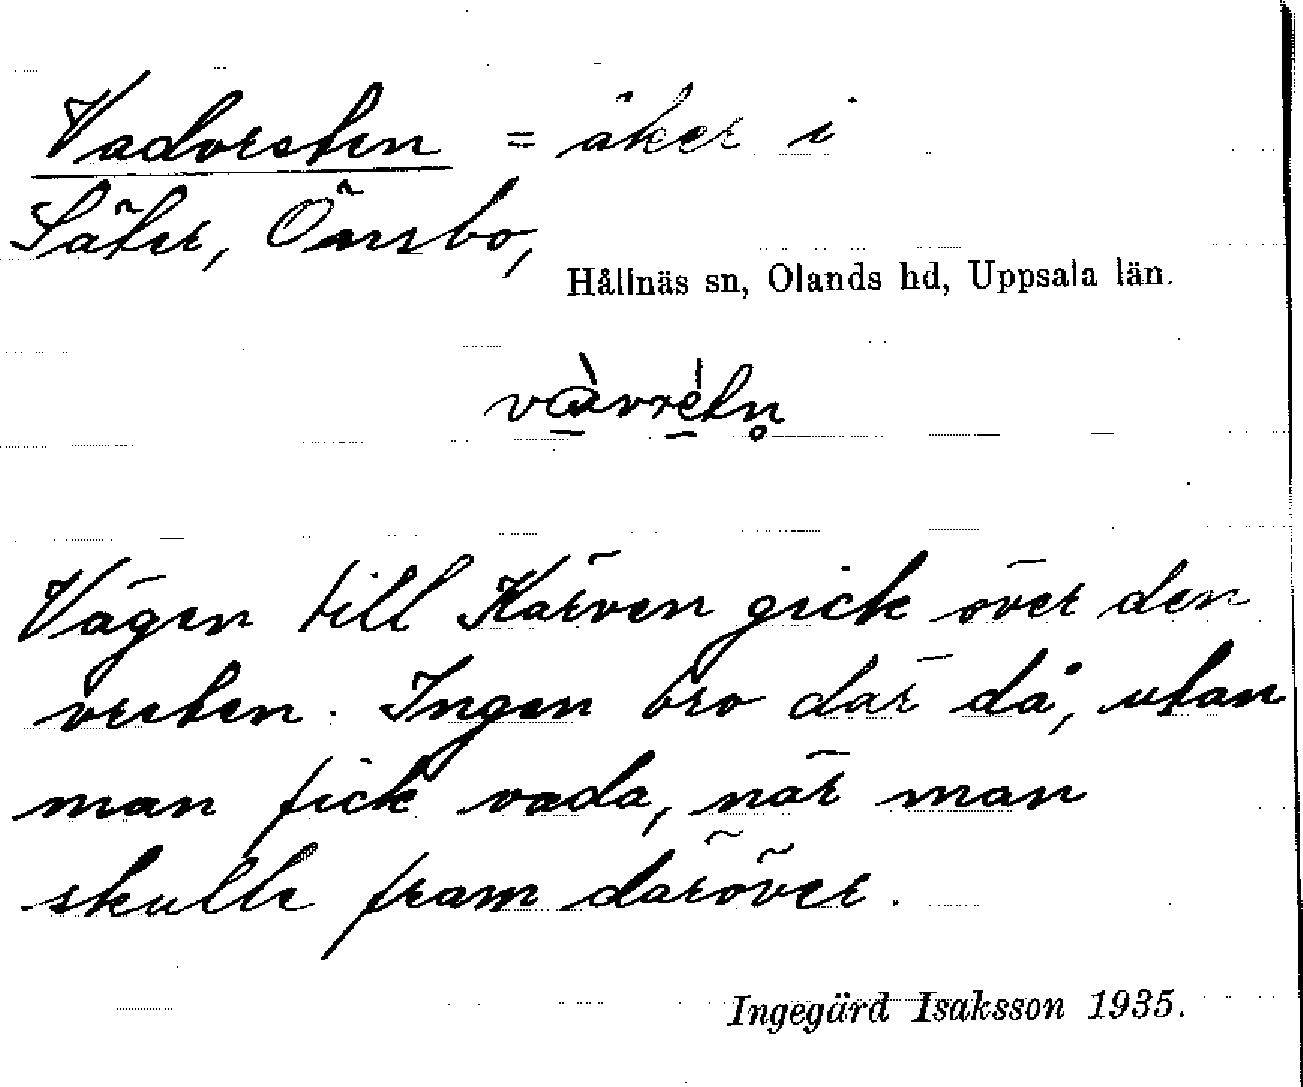 Vadvreten = åker i
Säter, Önsbo,
Hållnäs sn, Olands hd, Uppsala län.
Vägen till Kärven gick över den
vreten. Ingen bro där då, utan
man fick vada, när man
skulle fram däröver.
Ingegärd Isaksson 1935.